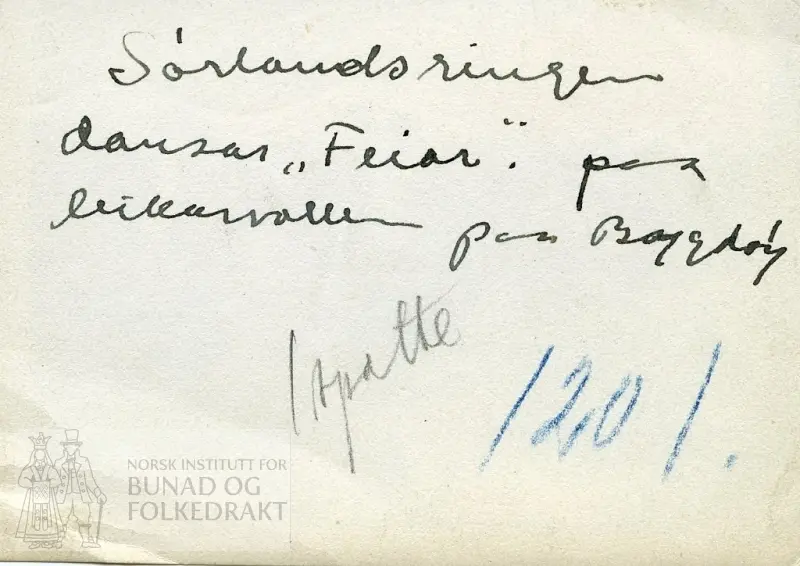 Sørlandsringen
dansar „Feiar". paa
leikarvollen paa Bygdøy
/20/.
NORSK INSTITUTT FOR
BUNAD OG
FOLKEDRAKT